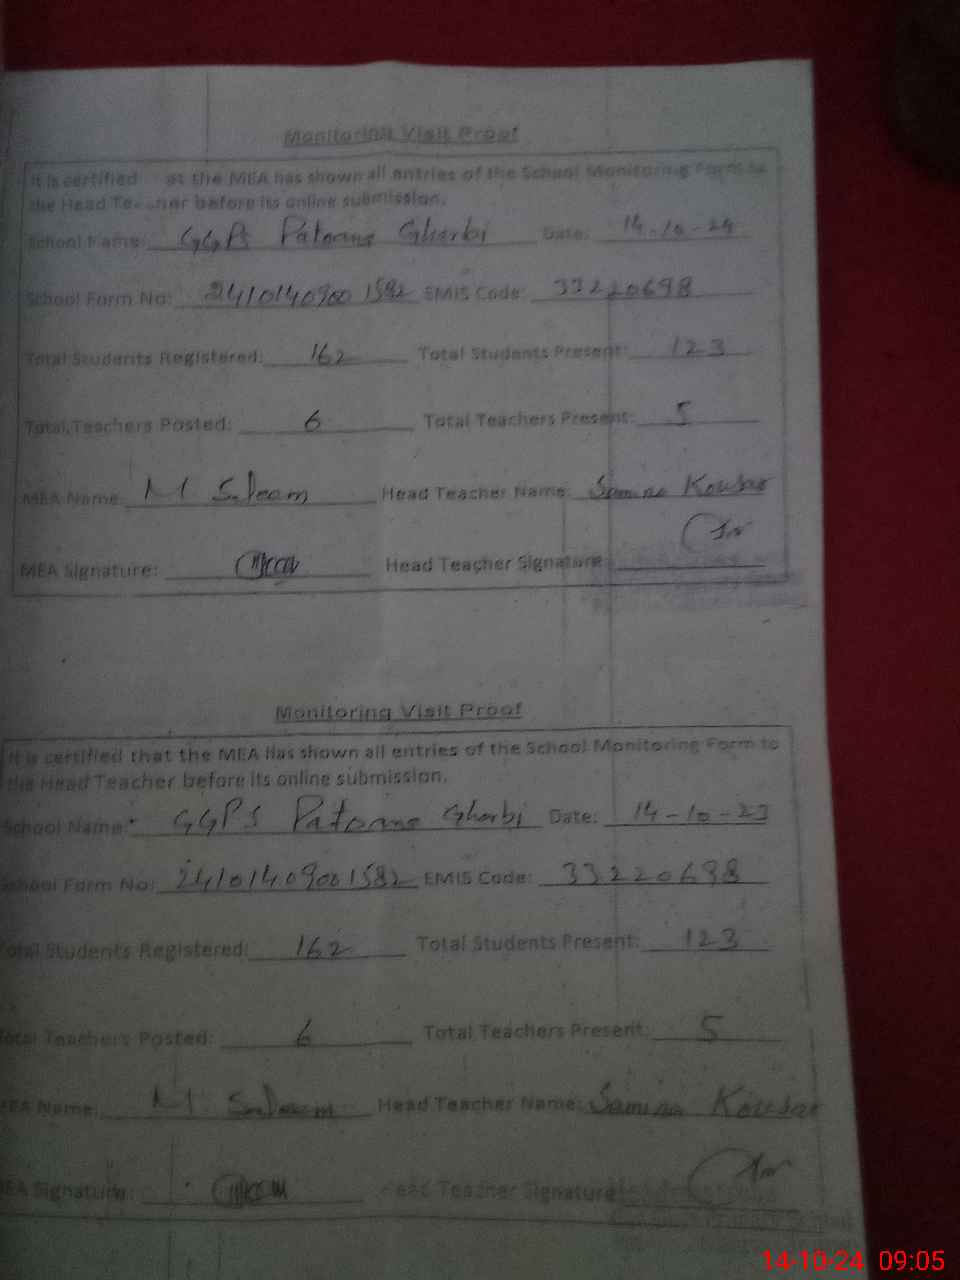 Monitoring Visit Proof
It is certified at the MEA has shown all entries of the School Monitoring Form to
the Head Teacher before its online submission.
School Name: GGPS Patoana Gharbi Date: 14-10-24
School Form No: 24101409001582 EMIS Code: 33220698
Total Students Registered: 162 Total Students Present: 123
Total Teachers Posted: 6 Total Teachers Present: 5
MEA Name: M Saleem Head Teacher Name: Samina Kousar
MEA Signature: Head Teacher Signature:
Monitoring Visit Proof
It is certified that the MEA has shown all entries of the School Monitoring Form to
the Head Teacher before its online submission.
School Name: GGPS Patoana Gharbi Date: 14-10-23
School Form No: 24101409001582 EMIS Code: 33220698
Total Students Registered: 162 Total Students Present: 123
Total Teachers Posted: 6 Total Teachers Present: 5
MEA Name: M Saleem Head Teacher Name: Samina Kousar
MEA Signature: Head Teacher Signature
14-10-24 09:05